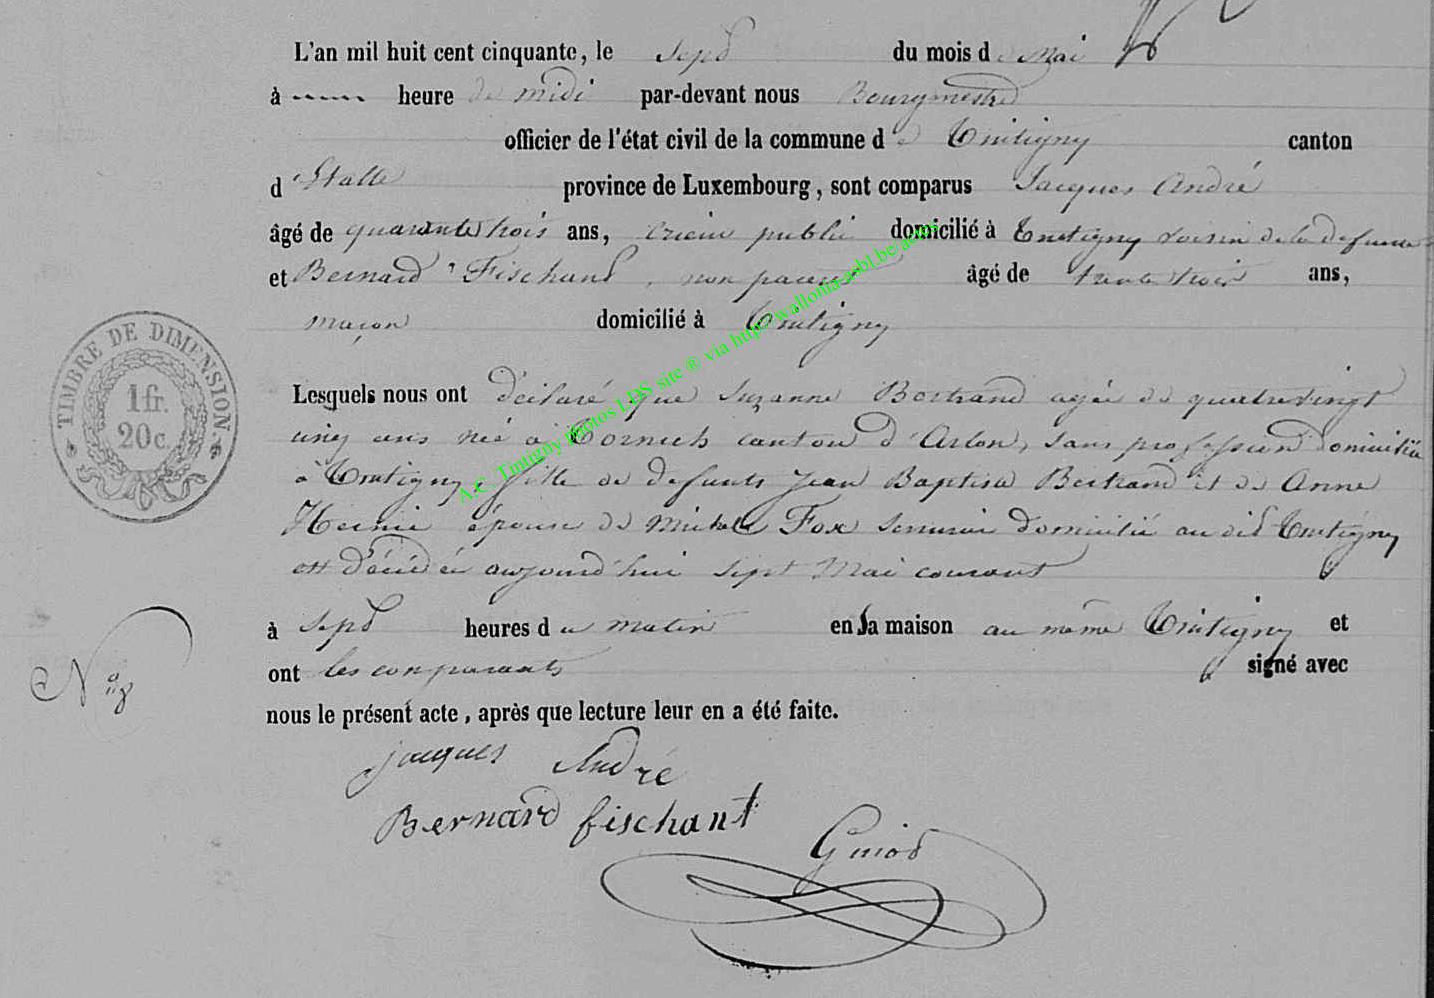 L'an mil huit cent cinquante, le Sept du mois de Mai
à heure de midi par-devant nous Bourgmestre
officier de l'état civil de la commune de Tintigny canton
d'Etalle province de Luxembourg, sont comparus Jacques André
âgé de quarante trois ans, crieur public domicilié à Tintigny voisin de la defunte
et Bernard Fischant, non parent âgé de trente trois ans,
maçon domicilié à Tintigny
Lesquels nous ont déclaré que Suzanne Bertrand agée de quatrevingt
cinq ans née à canton d'Arlon, sans profession domiciliée
à Tintigny, fille de defunts Jean Baptise Bertrand et de Anne
épouse de Michel Fox serrurier domicilié au dit Tintigny
est décédée aujourd'hui sept Mai courant
à Sept heures du matin en sa maison au même Tintigny et
ont les comparants signé avec
nous le présent acte, après que lecture leur en a été faite.
N°
TIMBRE DE DIMENSION
1 fr.
20 c.
jacques André
Bernard fischant
Guiot
A.C. Tintigny Photos LDS site ® via http://wallonia-asbl.be/actes